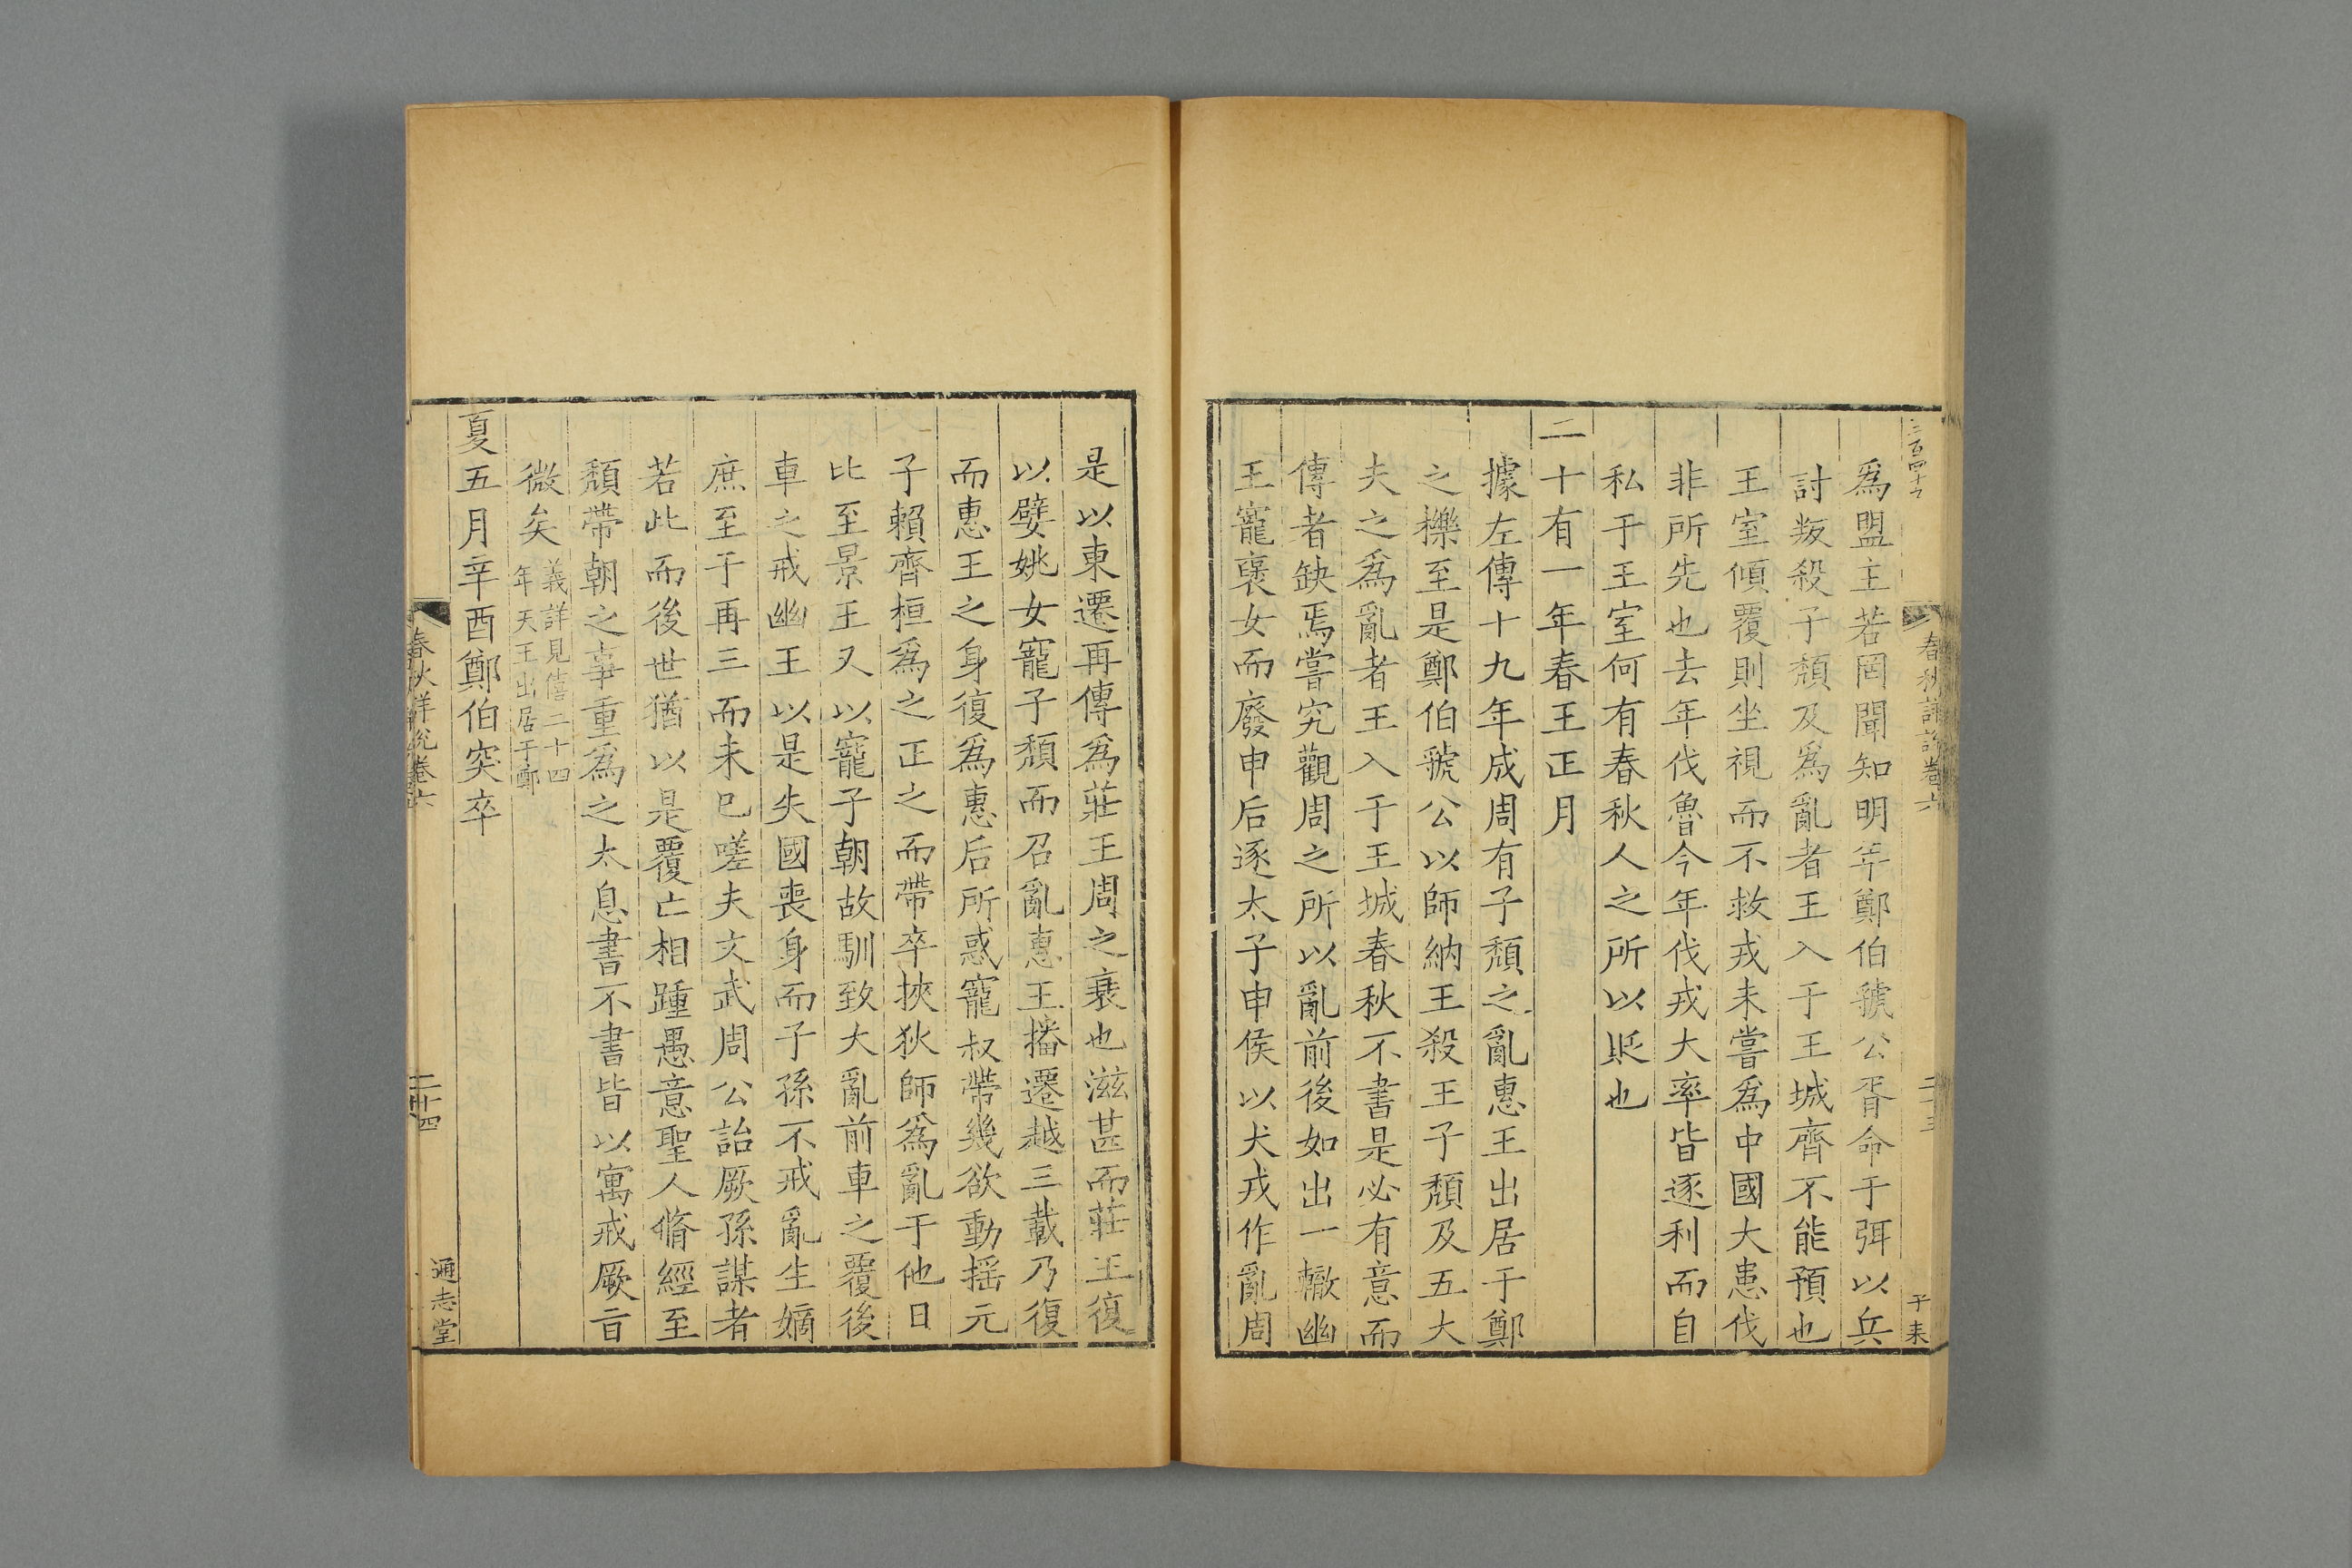 春秋詳說卷六
爲盟主若罔聞知明年鄭伯虢公胥命于弭以兵
討叛殺子頹及爲亂者王入于王城齊不能預也
王室傾覆則坐視而不救戎未嘗爲中國大患伐
非所先也去年伐魯今年伐戎大率皆逐利而自
私于王室何有春秋人之所以貶也
二十有一年春王正月
據左傳十九年成周有子頹之亂惠王出居于鄭
之櫟至是鄭伯虢公以師納王殺王子頹及五大
夫之爲亂者王入于王城春秋不書是必有意而
傳者缺焉嘗究觀周之所以亂前後如出一轍幽
王寵褒女而廢申后逐太子申侯以犬戎作亂周
是以東遷再傳爲莊王周之衰也滋甚而莊王復
以嬖姚女寵子頹而召亂惠王播遷越三載乃復
而惠王之身復爲惠后所惑寵叔帶幾欲動揺元
子賴齊桓爲之正之而帶卒挾狄師爲亂于他日
比至景王又以寵子朝故馴致大亂前車之覆後
車之戒幽王以是失國喪身而子孫不戒亂生嫡
庶至于再三而未已嗟夫文武周公詒厥孫謀者
若此而後世猶以是覆亡相踵愚意聖人脩經至
頹帶朝之事重爲之太息書不書皆以寓戒厥旨
微矣義詳見僖二十四
年天王出居于鄭
夏五月辛酉鄭伯突卒
春秋詳說卷六
二十四
通志堂